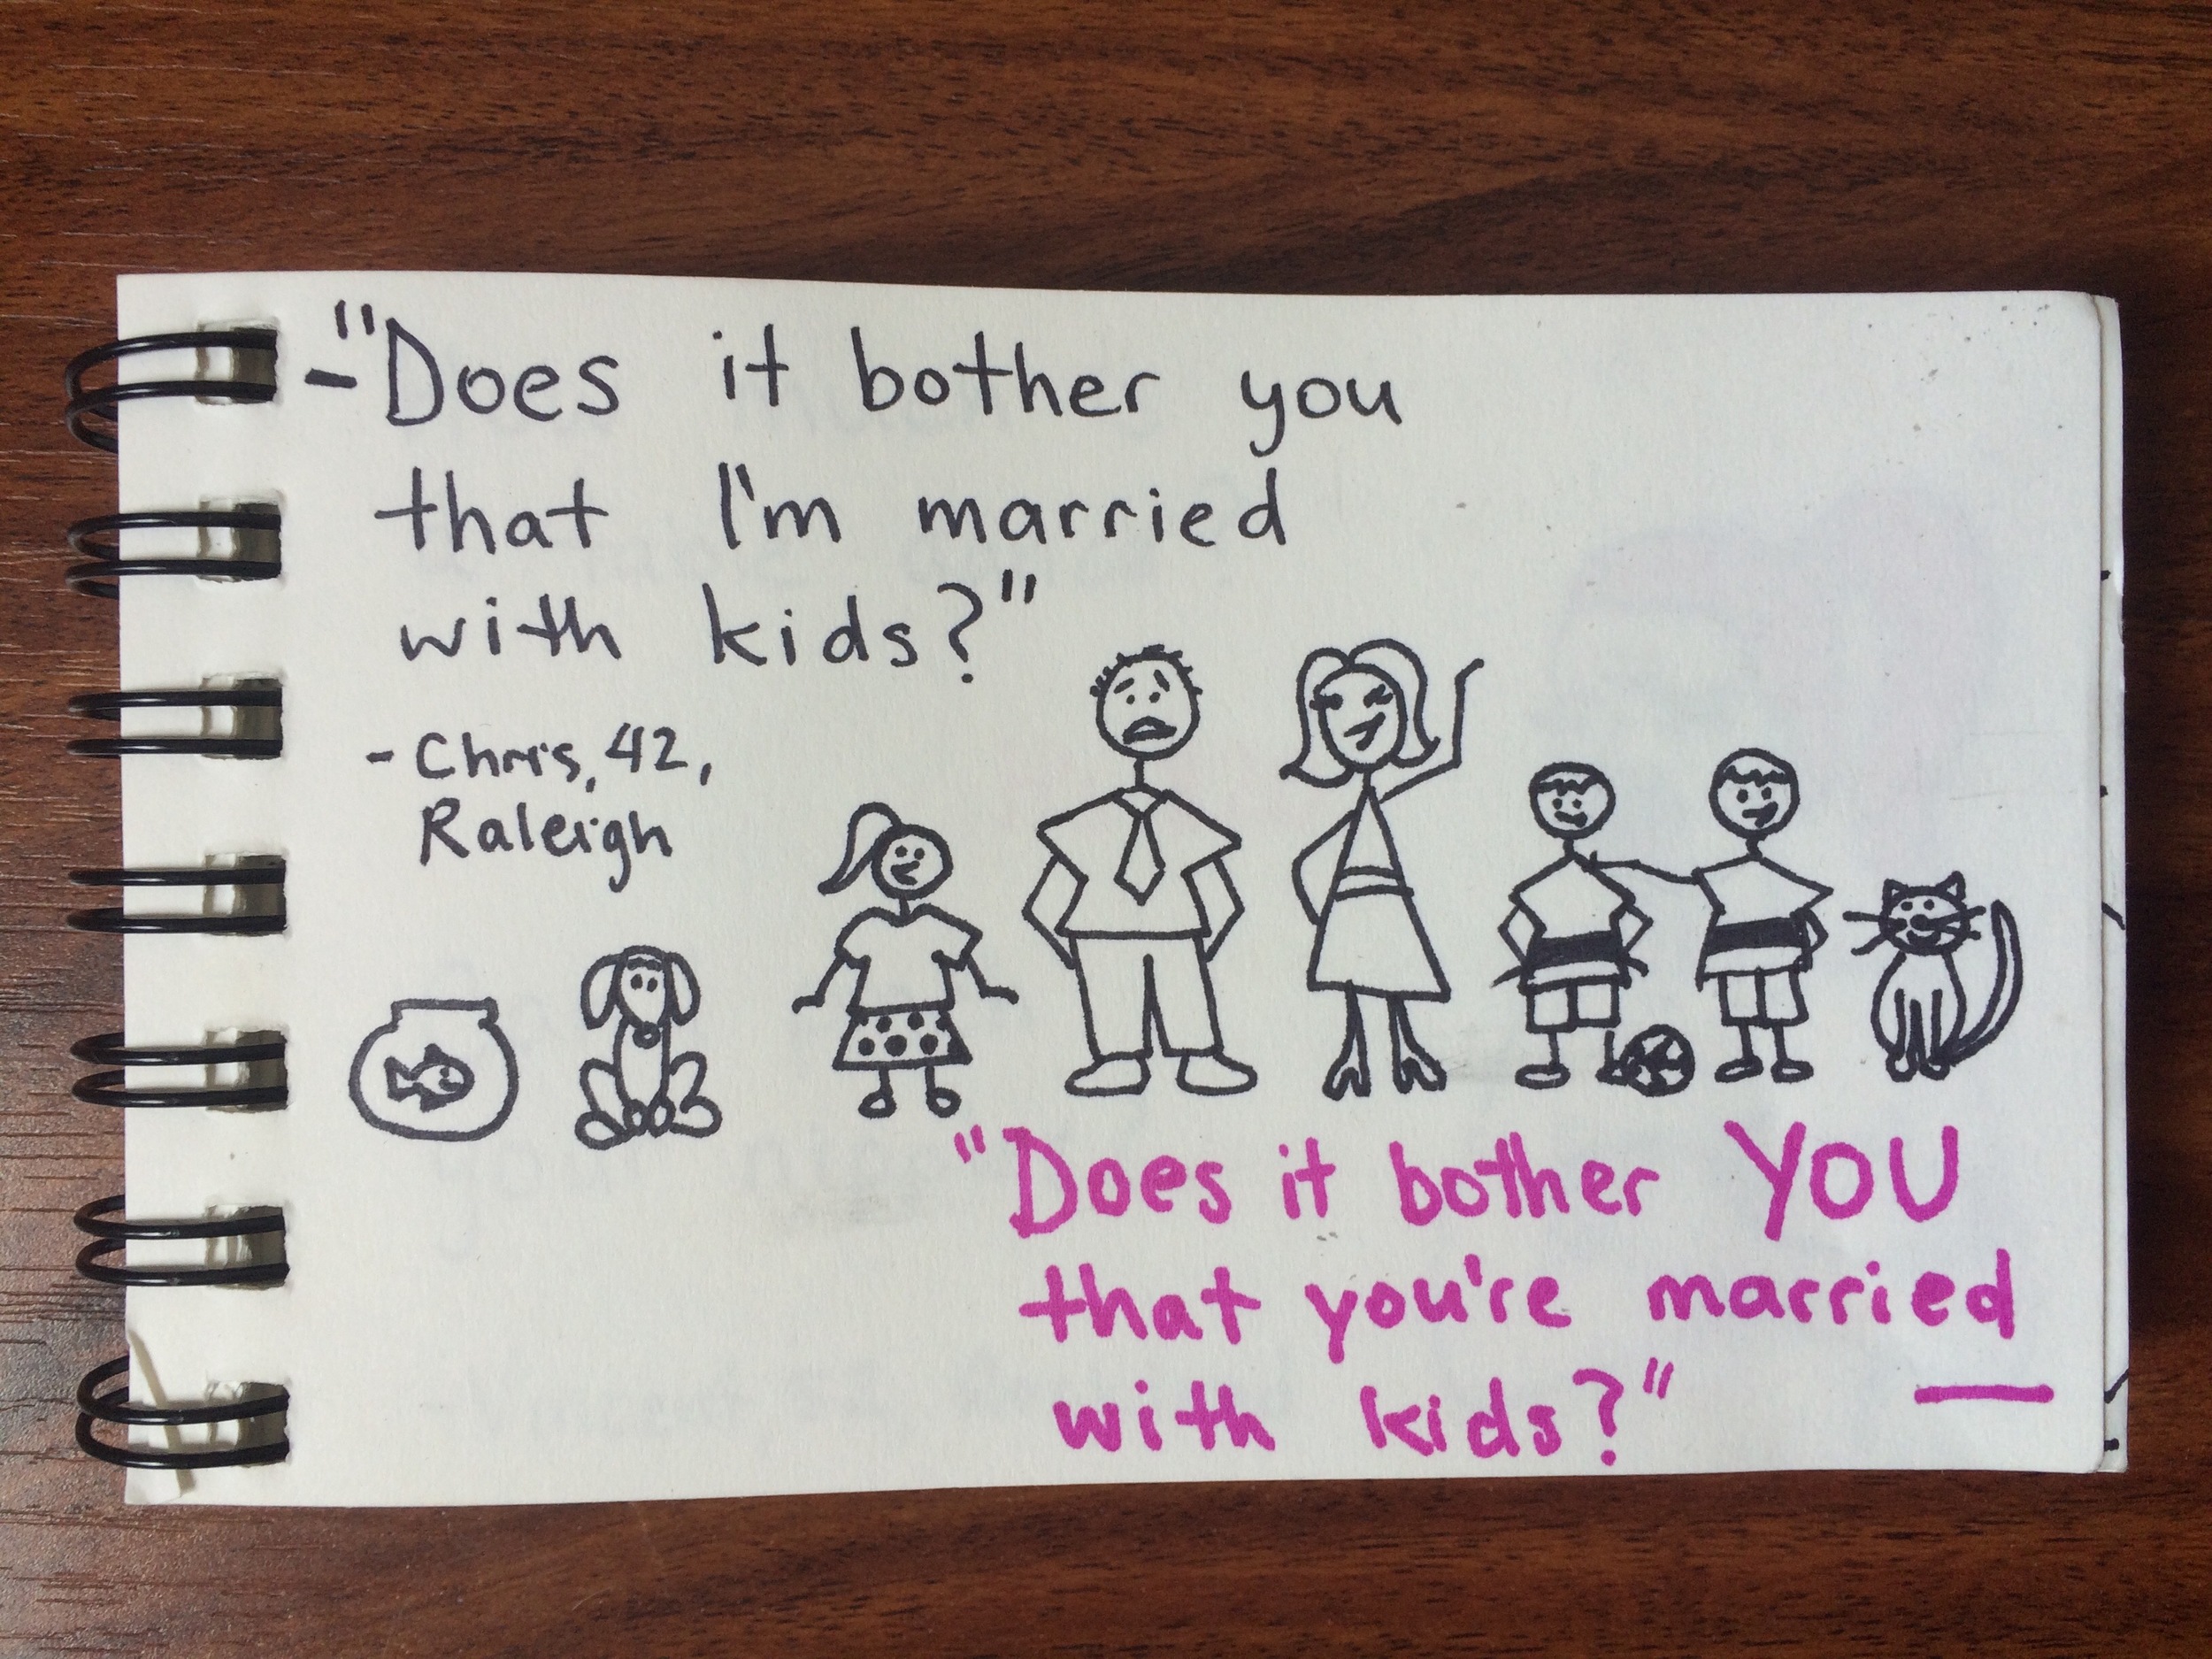 -"Does it bother you
that I'm married
with kids?"
- Chris, 42,
Raleigh
"Does it bother YOU
that you're married
with kids?"